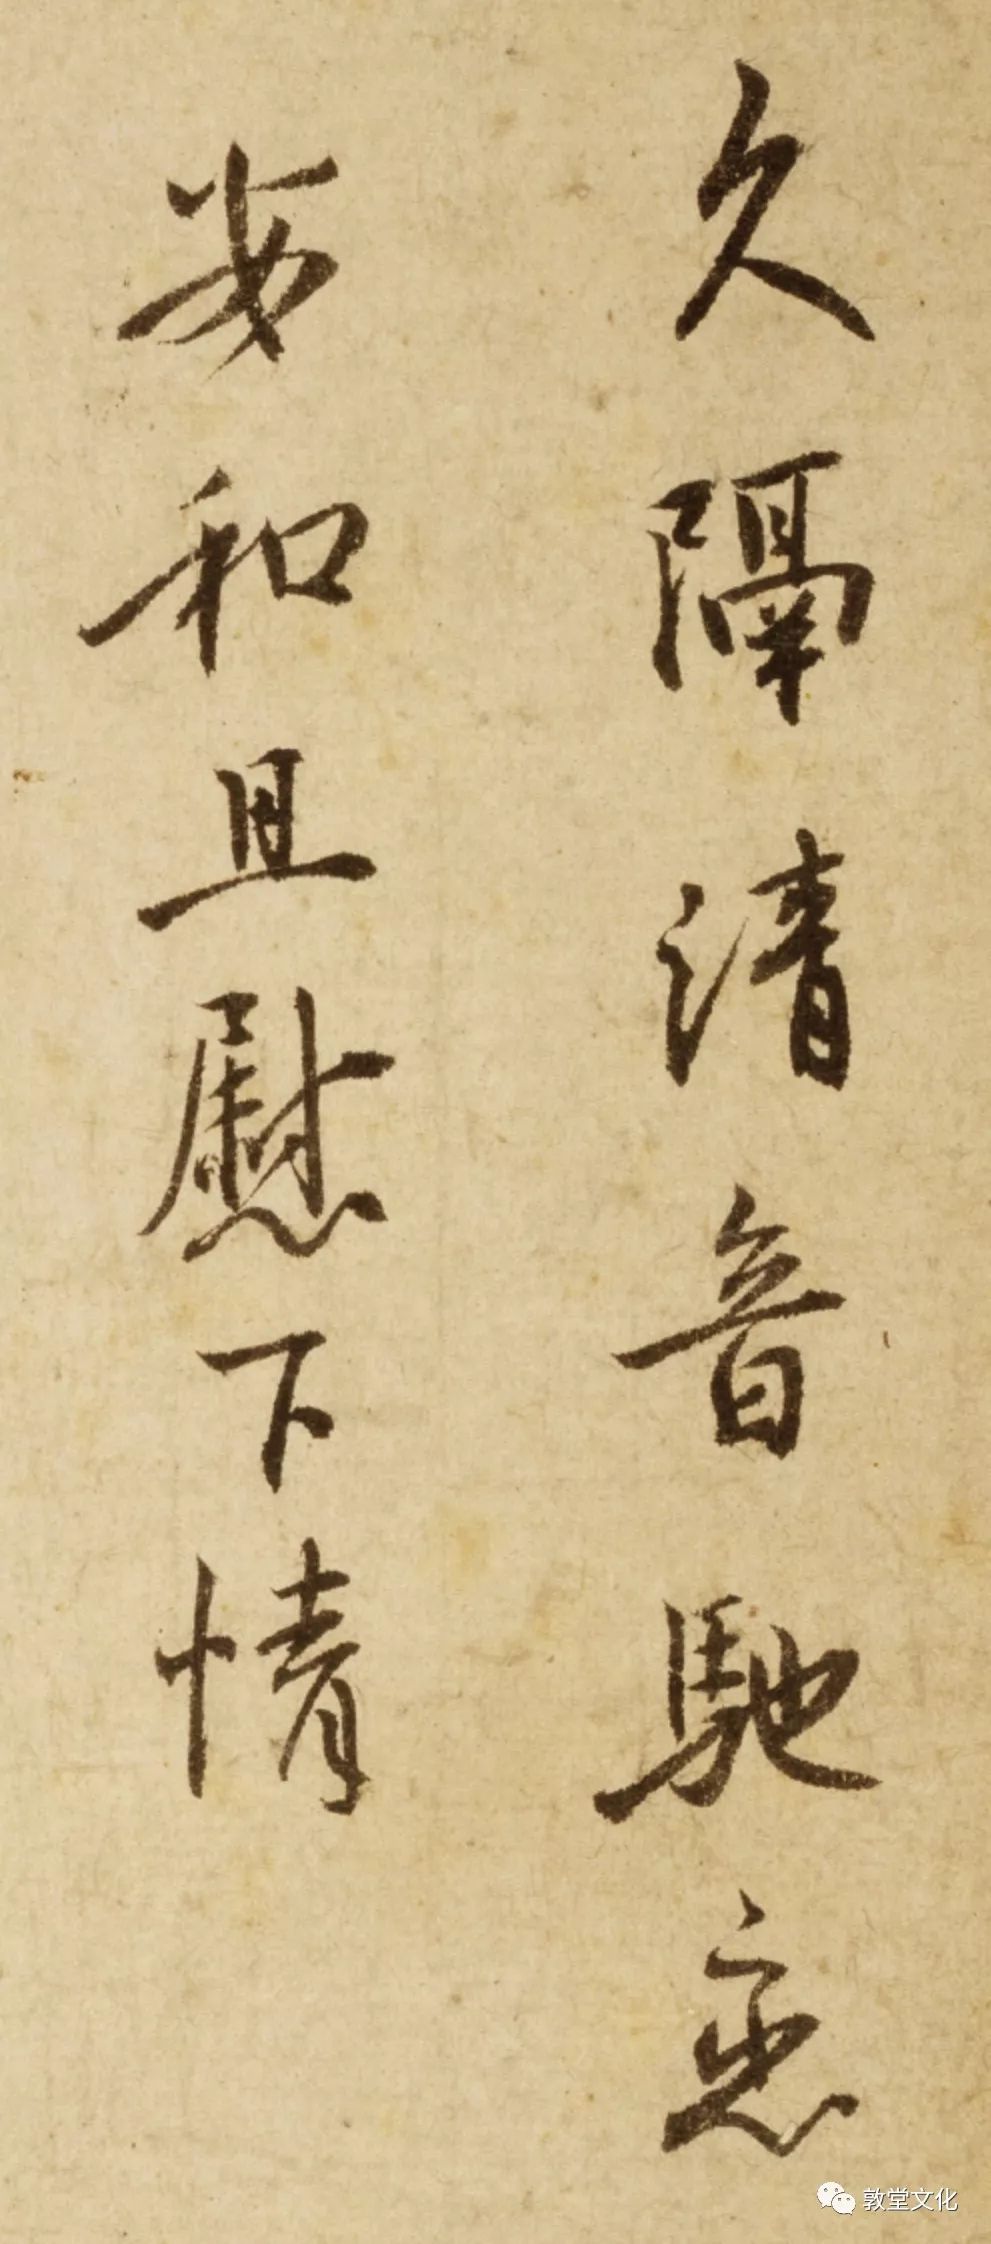 久隔清音馳戀
安和且慰下情
敦堂文化